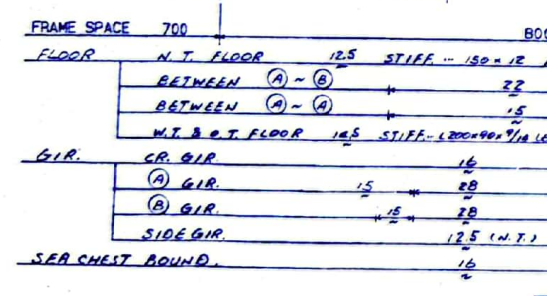 FRAME SPACE 700
FLOOR N.T. FLOOR 12.5 STIFF... 150 x 12
BETWEEN Ⓐ ~ Ⓑ 22
BETWEEN Ⓐ ~ Ⓐ 15
W.T. & O.T. FLOOR STIFF.. L200x90x9/14
GIR. CR. GIR. 16
Ⓐ GIR. 15 28
Ⓑ GIR. 15 28
SIDE GIR. 12.5 (N.T.)
SEA CHEST BOUND. 16